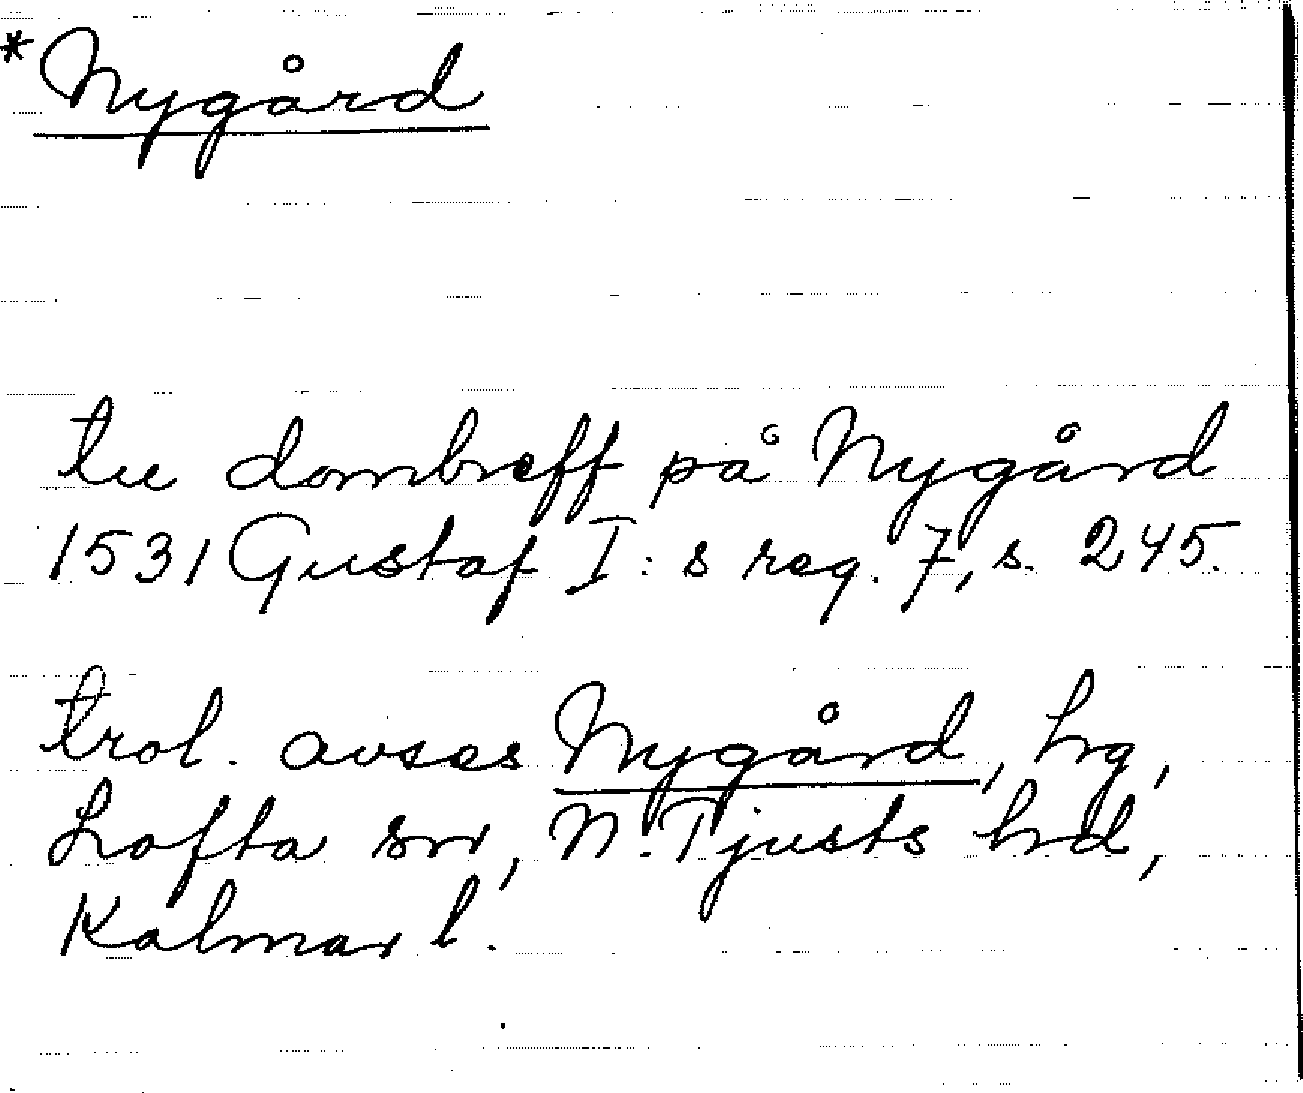 *Nygård
tee dombreff på Nygård
1531 Gustaf I:s reg. 7, s. 245.
trol. avses Nygård, hg,
Lofta sn, N. Tjusts hd,
Kalmar l.